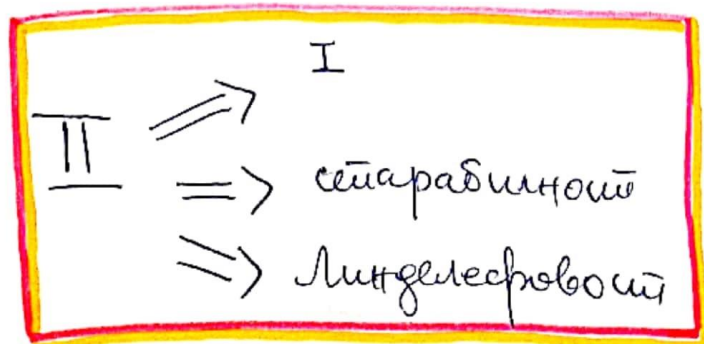 I
II ⇒
⇒ сепарабилност
⇒ Линделефовост